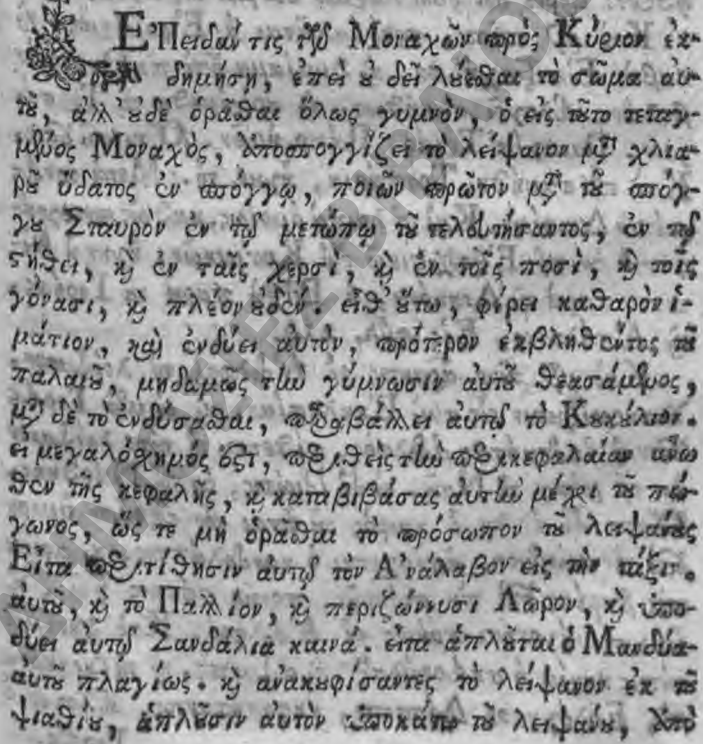 Ἐπειδάν τις τῶν Μοναχῶν πρὸς Κύριον ἐκ-
δημήσῃ, ἐπεὶ οὐ δεῖ λούεσθαι τὸ σῶμα αὐ-
τοῦ, ἀλλ' οὐδὲ ὁρᾶσθαι ὅλως γυμνὸν, ὁ εἰς τοῦτο τεταγ-
μένος Μοναχὸς, ἀποσπογγίζει τὸ λείψανον μετὰ χλια-
ροῦ ὕδατος ἐν σπόγγῳ, ποιῶν πρῶτον μετὰ τοῦ σπόγ-
γου Σταυρὸν ἐν τῷ μετώπῳ τοῦ τελευτήσαντος, ἐν τῷ
στήθει, καὶ ἐν ταῖς χερσὶ, καὶ ἐν τοῖς ποσὶ, καὶ τοῖς
γόνασι, καὶ πλέον οὐδέν. εἶθ' οὕτω, φέρει καθαρὸν ἱ-
μάτιον, καὶ ἐνδύει αὐτὸν, πρότερον ἐκβληθέντος τοῦ
παλαιοῦ, μηδαμῶς τὴν γύμνωσιν αὐτοῦ θεασάμενος,
μετὰ δὲ τὸ ἐνδύσασθαι, παραβάλλει αὐτῷ τὸ Κουκούλιον.
εἰ μεγαλόσχημός ἐστι, περιθεὶς τὴν περικεφαλαίαν ἄνω
θεν τῆς κεφαλῆς, καὶ καταβιβάσας αὐτὴν μέχρι τοῦ πώ-
γωνος, ὥς τε μὴ ὁρᾶσθαι τὸ πρόσωπον τοῦ λειψάνου
Εἶτα περιτίθησιν αὐτῷ τὸν Ἀνάλαβον εἰς τὴν τάξιν.
αὐτοῦ, καὶ τὸ Παλλίον, καὶ περιζώννυσι Λῶρον, καὶ ὑπο-
δύει αὐτῷ Σανδάλια καινά. εἶτα ἁπλοῦται ὁ Μανδύα-
αὐτοῦ πλαγίως. καὶ ἀνακουφίσαντες τὸ λείψανον ἐκ τοῦ
ψιαθίου, ἁπλοῦσιν αὐτὸν ὑποκάτω τοῦ λειψάνου, ἀπὸ